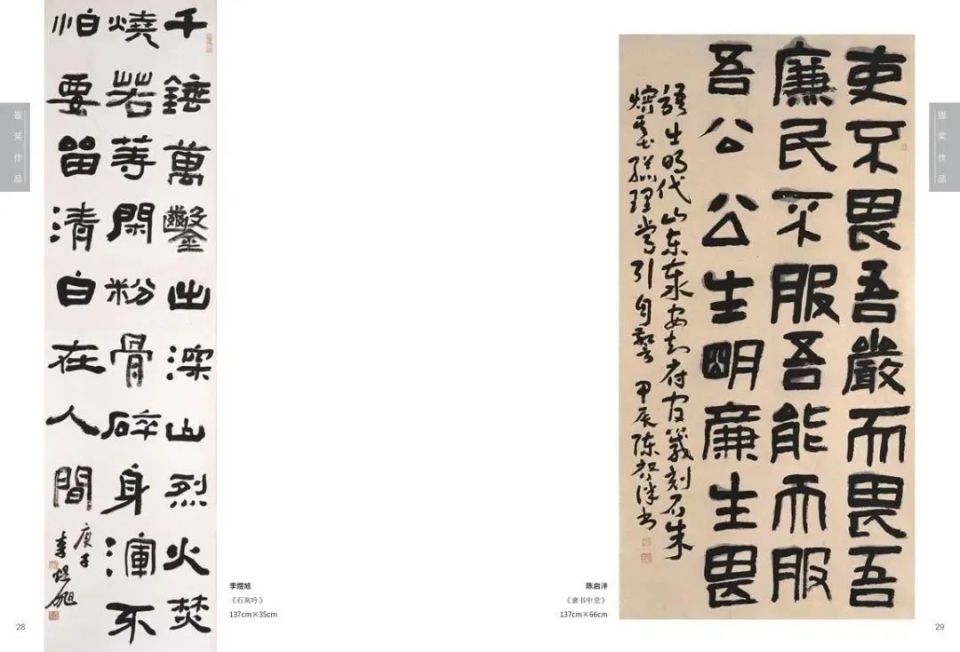 银奖作品
千錘萬鑿出深山烈火焚
燒若等閑粉骨碎身渾不
怕要留清白在人間
庚子
李煜旭
李煜旭
《石灰吟》
137cm×35cm
28
银奖作品
吏不畏吾嚴而畏吾
廉民不服吾能而服
吾公公生明廉生畏
語出明代山东泰安知府官箴刻石朱
总理常引自警 甲辰陈启洋书
陈启洋
《隶书中堂》
137cm×66cm
29